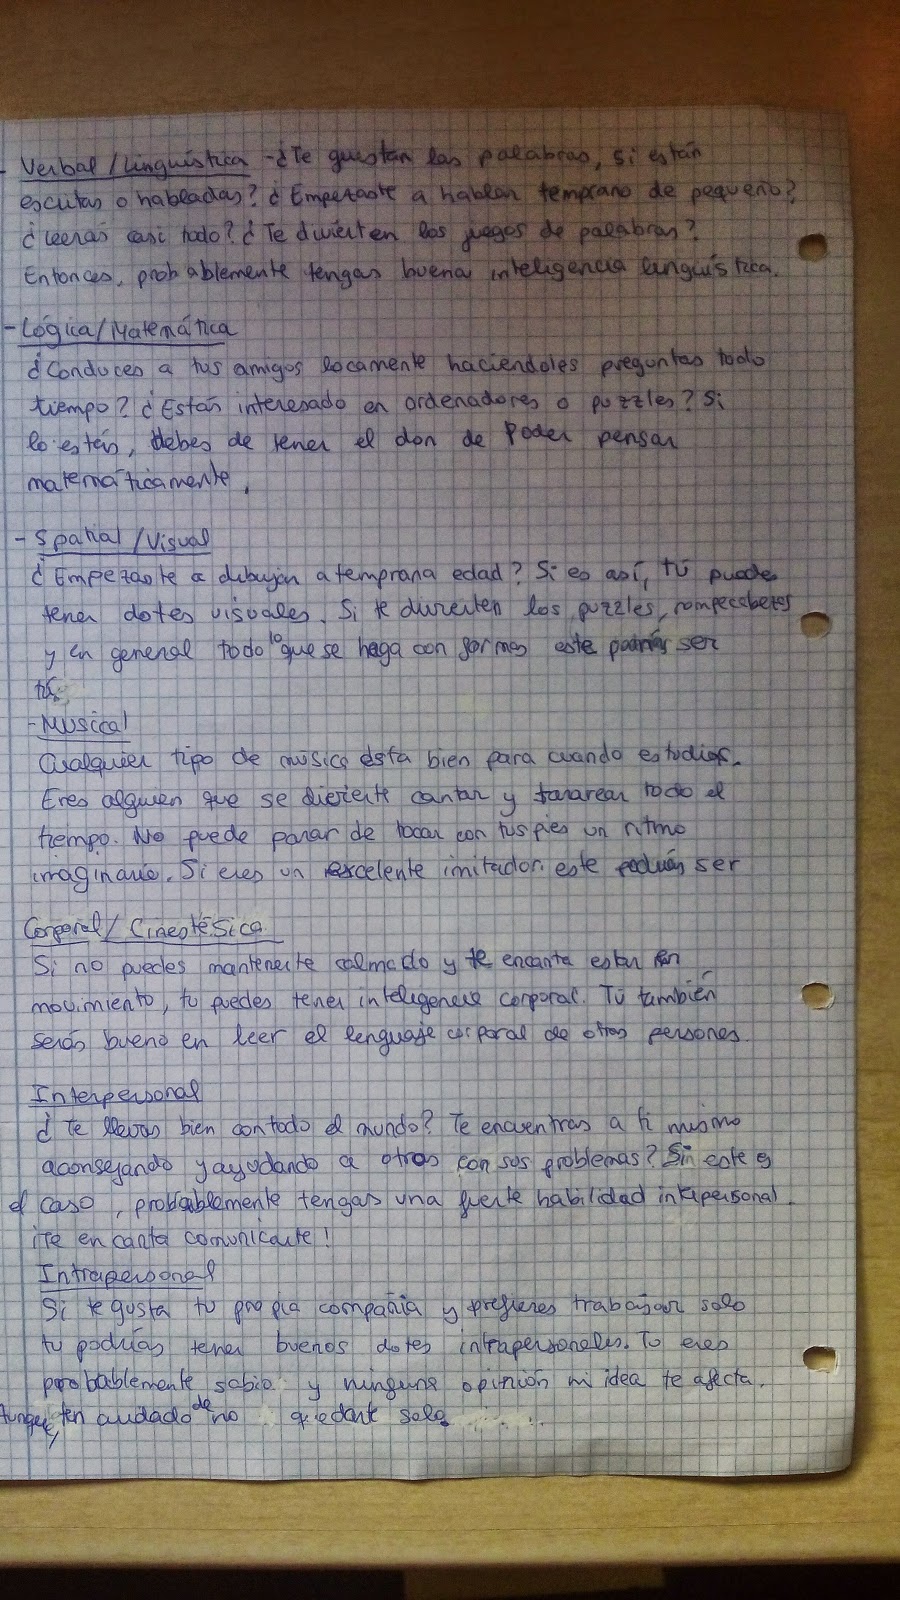 - Verbal / Lingüística - ¿Te gustan las palabras, si están
escritas o habladas? ¿Empezaste a hablar temprano de pequeño?
¿Leerás casi todo? ¿Te divierten los juegos de palabras?
Entonces, probablemente tengas buena inteligencia lingüística.
- Lógica / Matemática
¿Conduces a tus amigos locamente haciendoles preguntas todo
tiempo? ¿Estás interesado en ordenadores o puzzles? Si
lo estás, debes de tener el don de Poder pensar
matemáticamente.
- Spatial / Visual
¿Empezaste a dibujar a temprana edad? Si es así, tú puedes
tener dotes visuales. Si te divierten los puzzles, rompecabezas
y en general todo lo que se haga con formas este podrías ser
tú.
- Musical
Cualquier tipo de música esta bien para cuando estudias.
Eres alguien que se divierte cantar y tararear todo el
tiempo. No puede parar de tocar con tus pies un ritmo
imaginario. Si eres un excelente imitador. este podrías ser
Corporal / Cinestésica
Si no puedes mantenerte calmado y te encanta estar en
movimiento, tu puedes tener inteligencia corporal. Tú también
serás bueno en leer el lenguaje corporal de otras personas.
Interpersonal
¿Te llevas bien con todo el mundo? Te encuentras a ti mismo
aconsejando y ayudando a otros con sus problemas? Si este es
el caso, probablemente tengas una fuerte habilidad interpersonal.
¡Te encanta comunicarte!
Intrapersonal
Si te gusta tu propia compañia y prefieres trabajar solo
tu podrías tener buenos dotes intrapersonales. Tu eres
probablemente sabio y ninguna opinión ni idea te afecta.
Aunque, ten cuidado de no quedarte solo